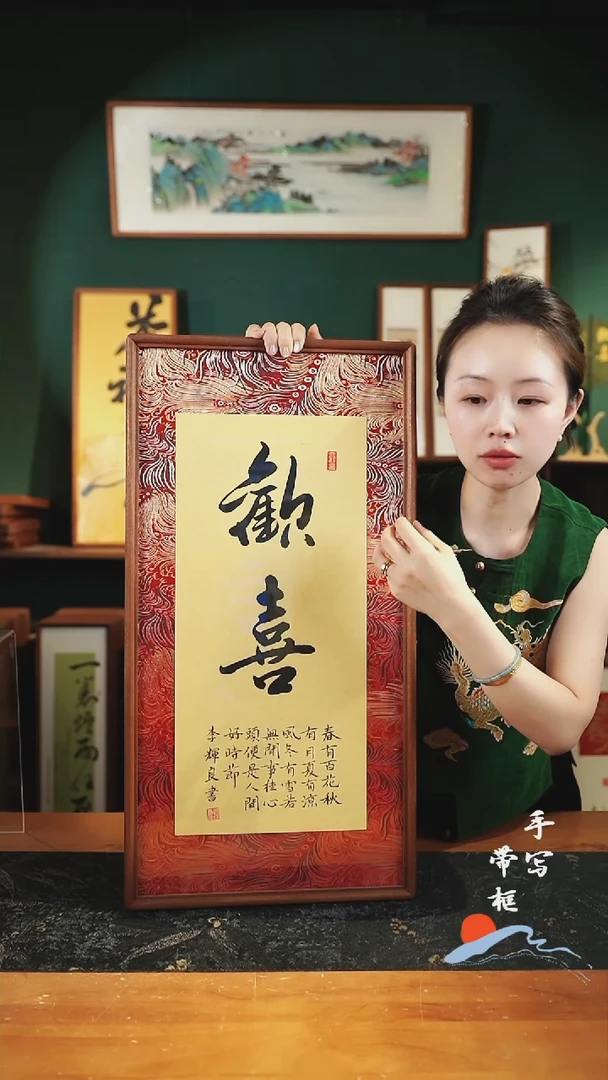 歡喜
春有百花秋
有月夏有涼
風冬有雪若
無閑事挂心
頭便是人間
好時節
李輝良書
手写
带框